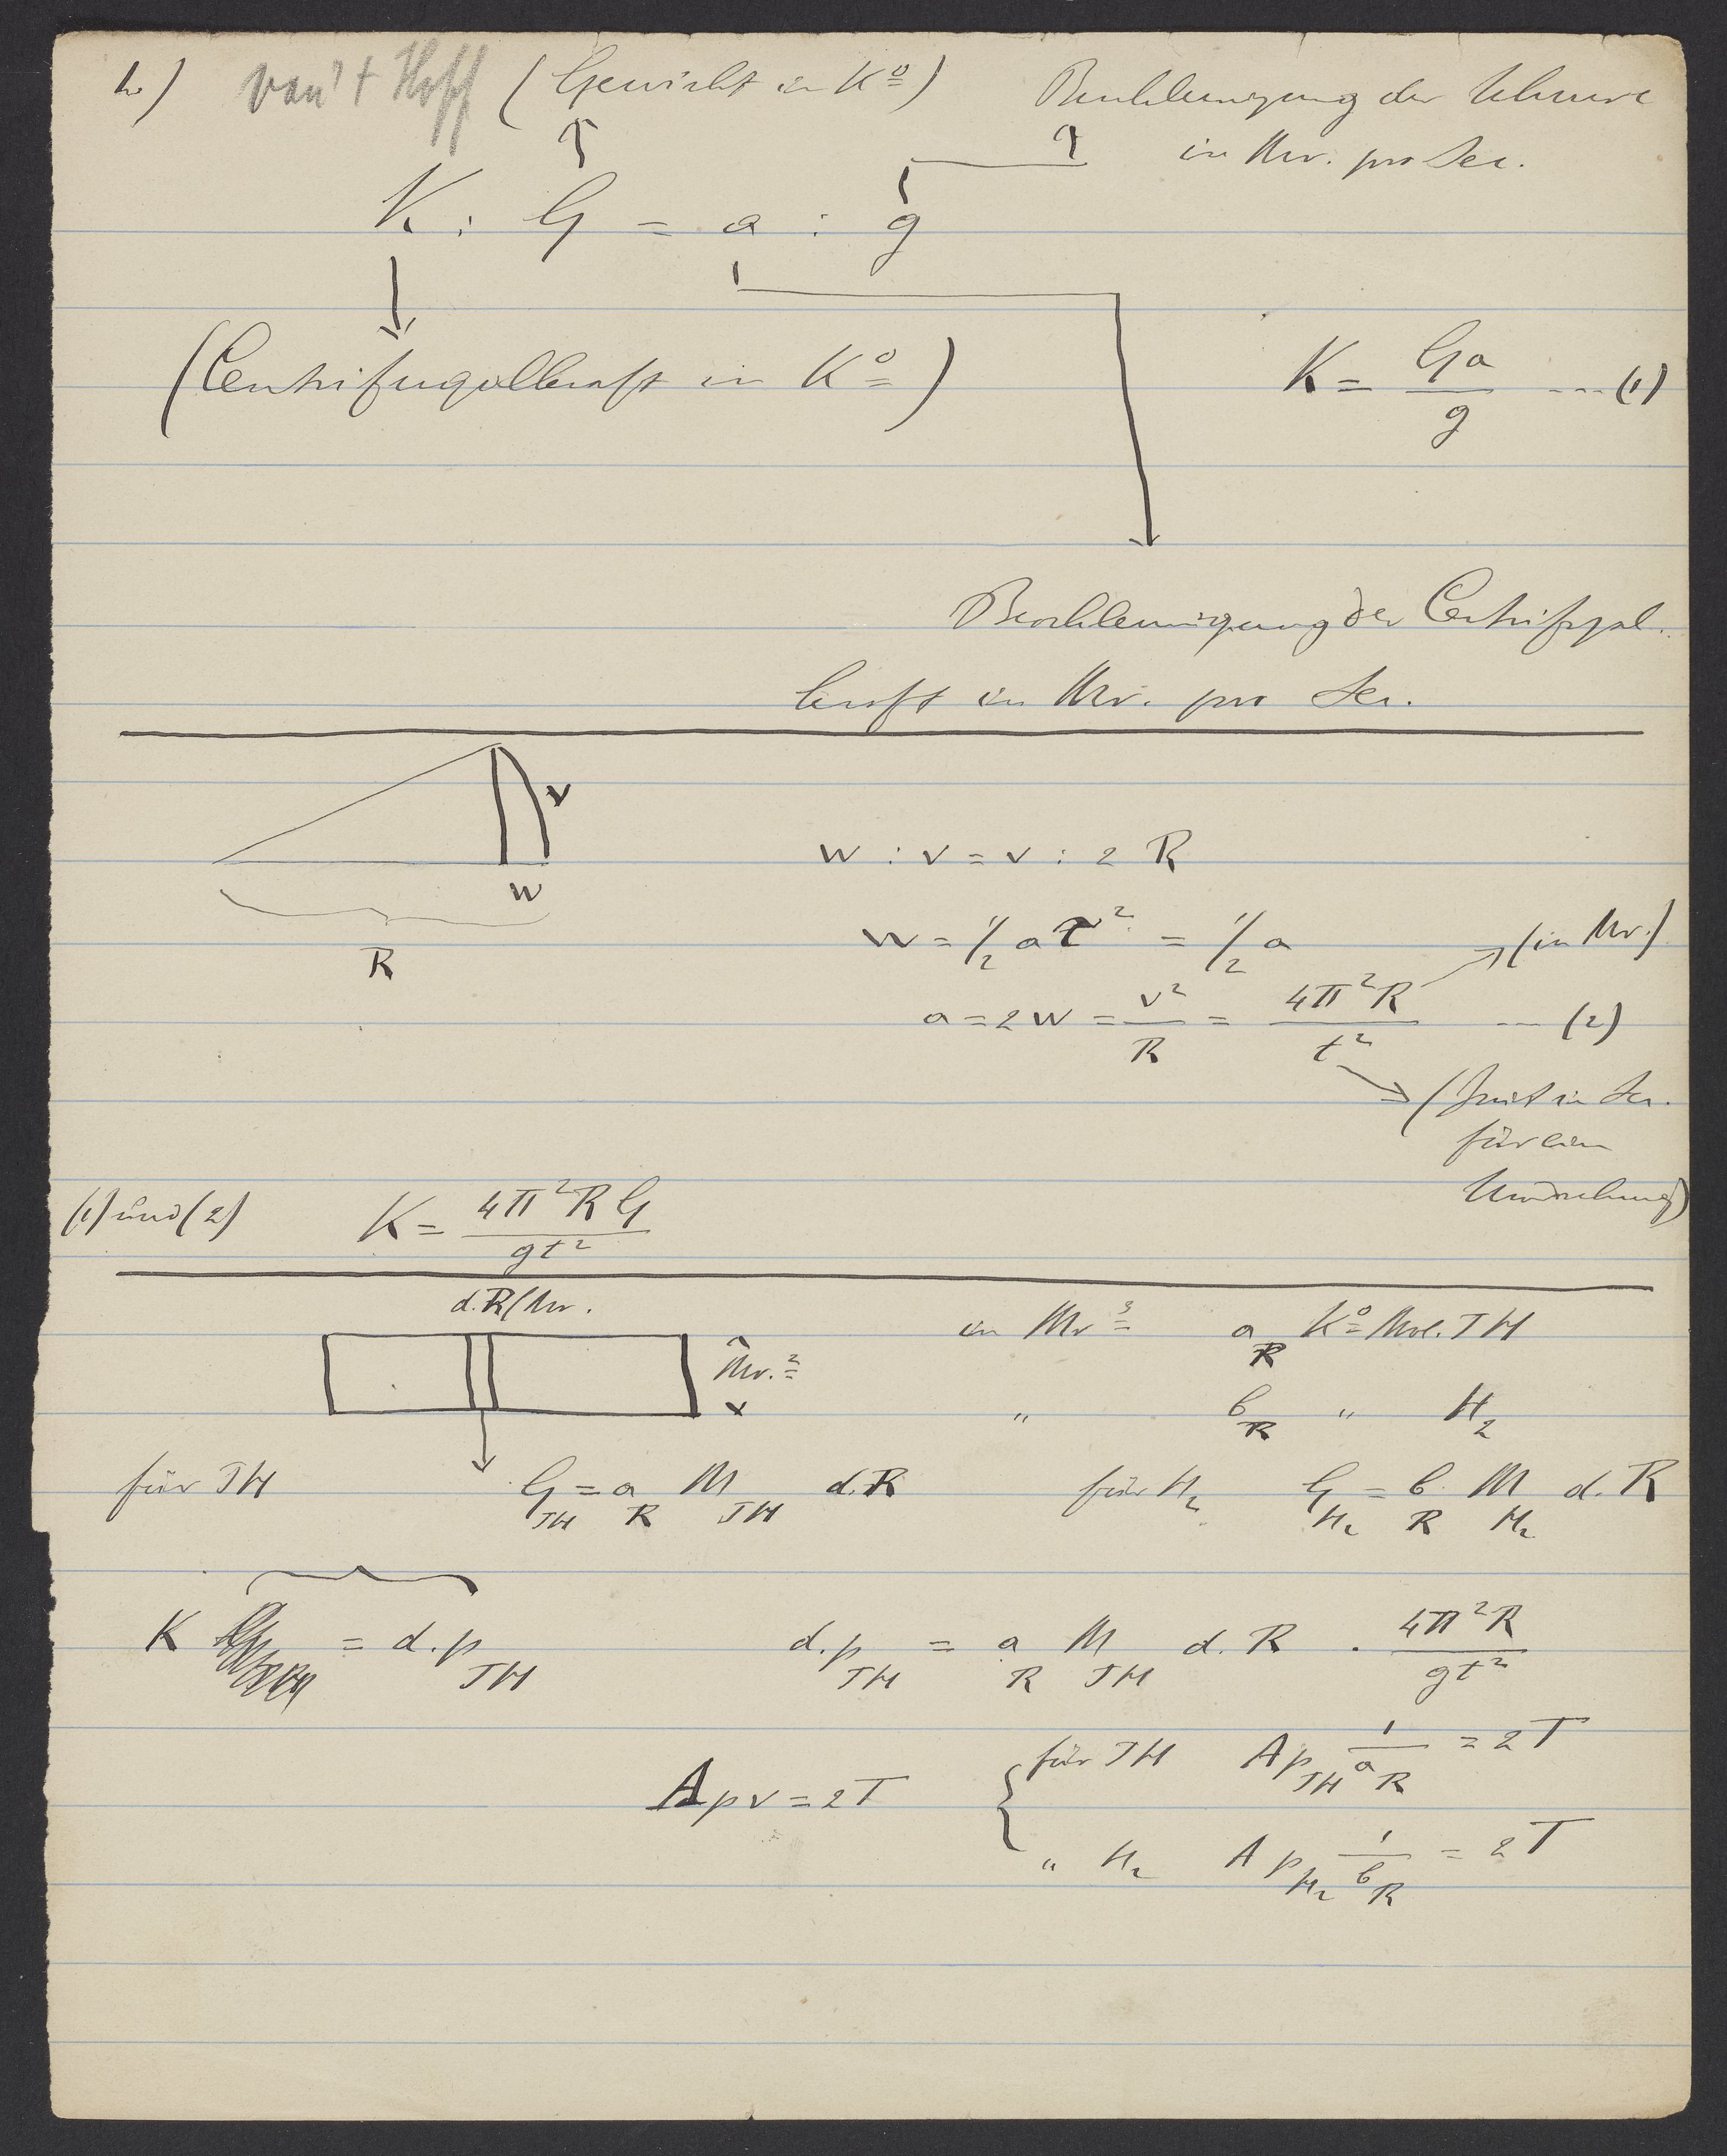 van't Hoff (Gewicht in K⁰) Beschleunigung der Schwere
in Mr. pro Sec.
K : G = a : g
(Centrifugalkraft in K⁰) K = Ga/g --- (1)
Beschleunigung der Centrifugal.
kraft in Mr. pro Sec.
v
w : v = v : 2 R
w
R
w = 1/2 a τ² = 1/2 a (in Mr.)
a = 2w = v²/R = 4π²R/t² --- (2)
(Zeit in Sec.
für eine
Umdrehung)
(1) und (2) K = 4π²RG/gt²
d.R(Mr.
in Mr³ a_R K⁰ Mol. JH
Mr.²
" b_R " H₂
für JH G_JH = a_R M_JH d.R für H₂ G_H₂ = b_R M_H₂ d.R
K = d.p_JH d.p_JH = a_R M_JH d.R . 4π²R/gt²
für JH Ap_JH 1/a_R = 2T
Apv = 2T
" H₂ Ap_H₂ 1/b_R = 2T